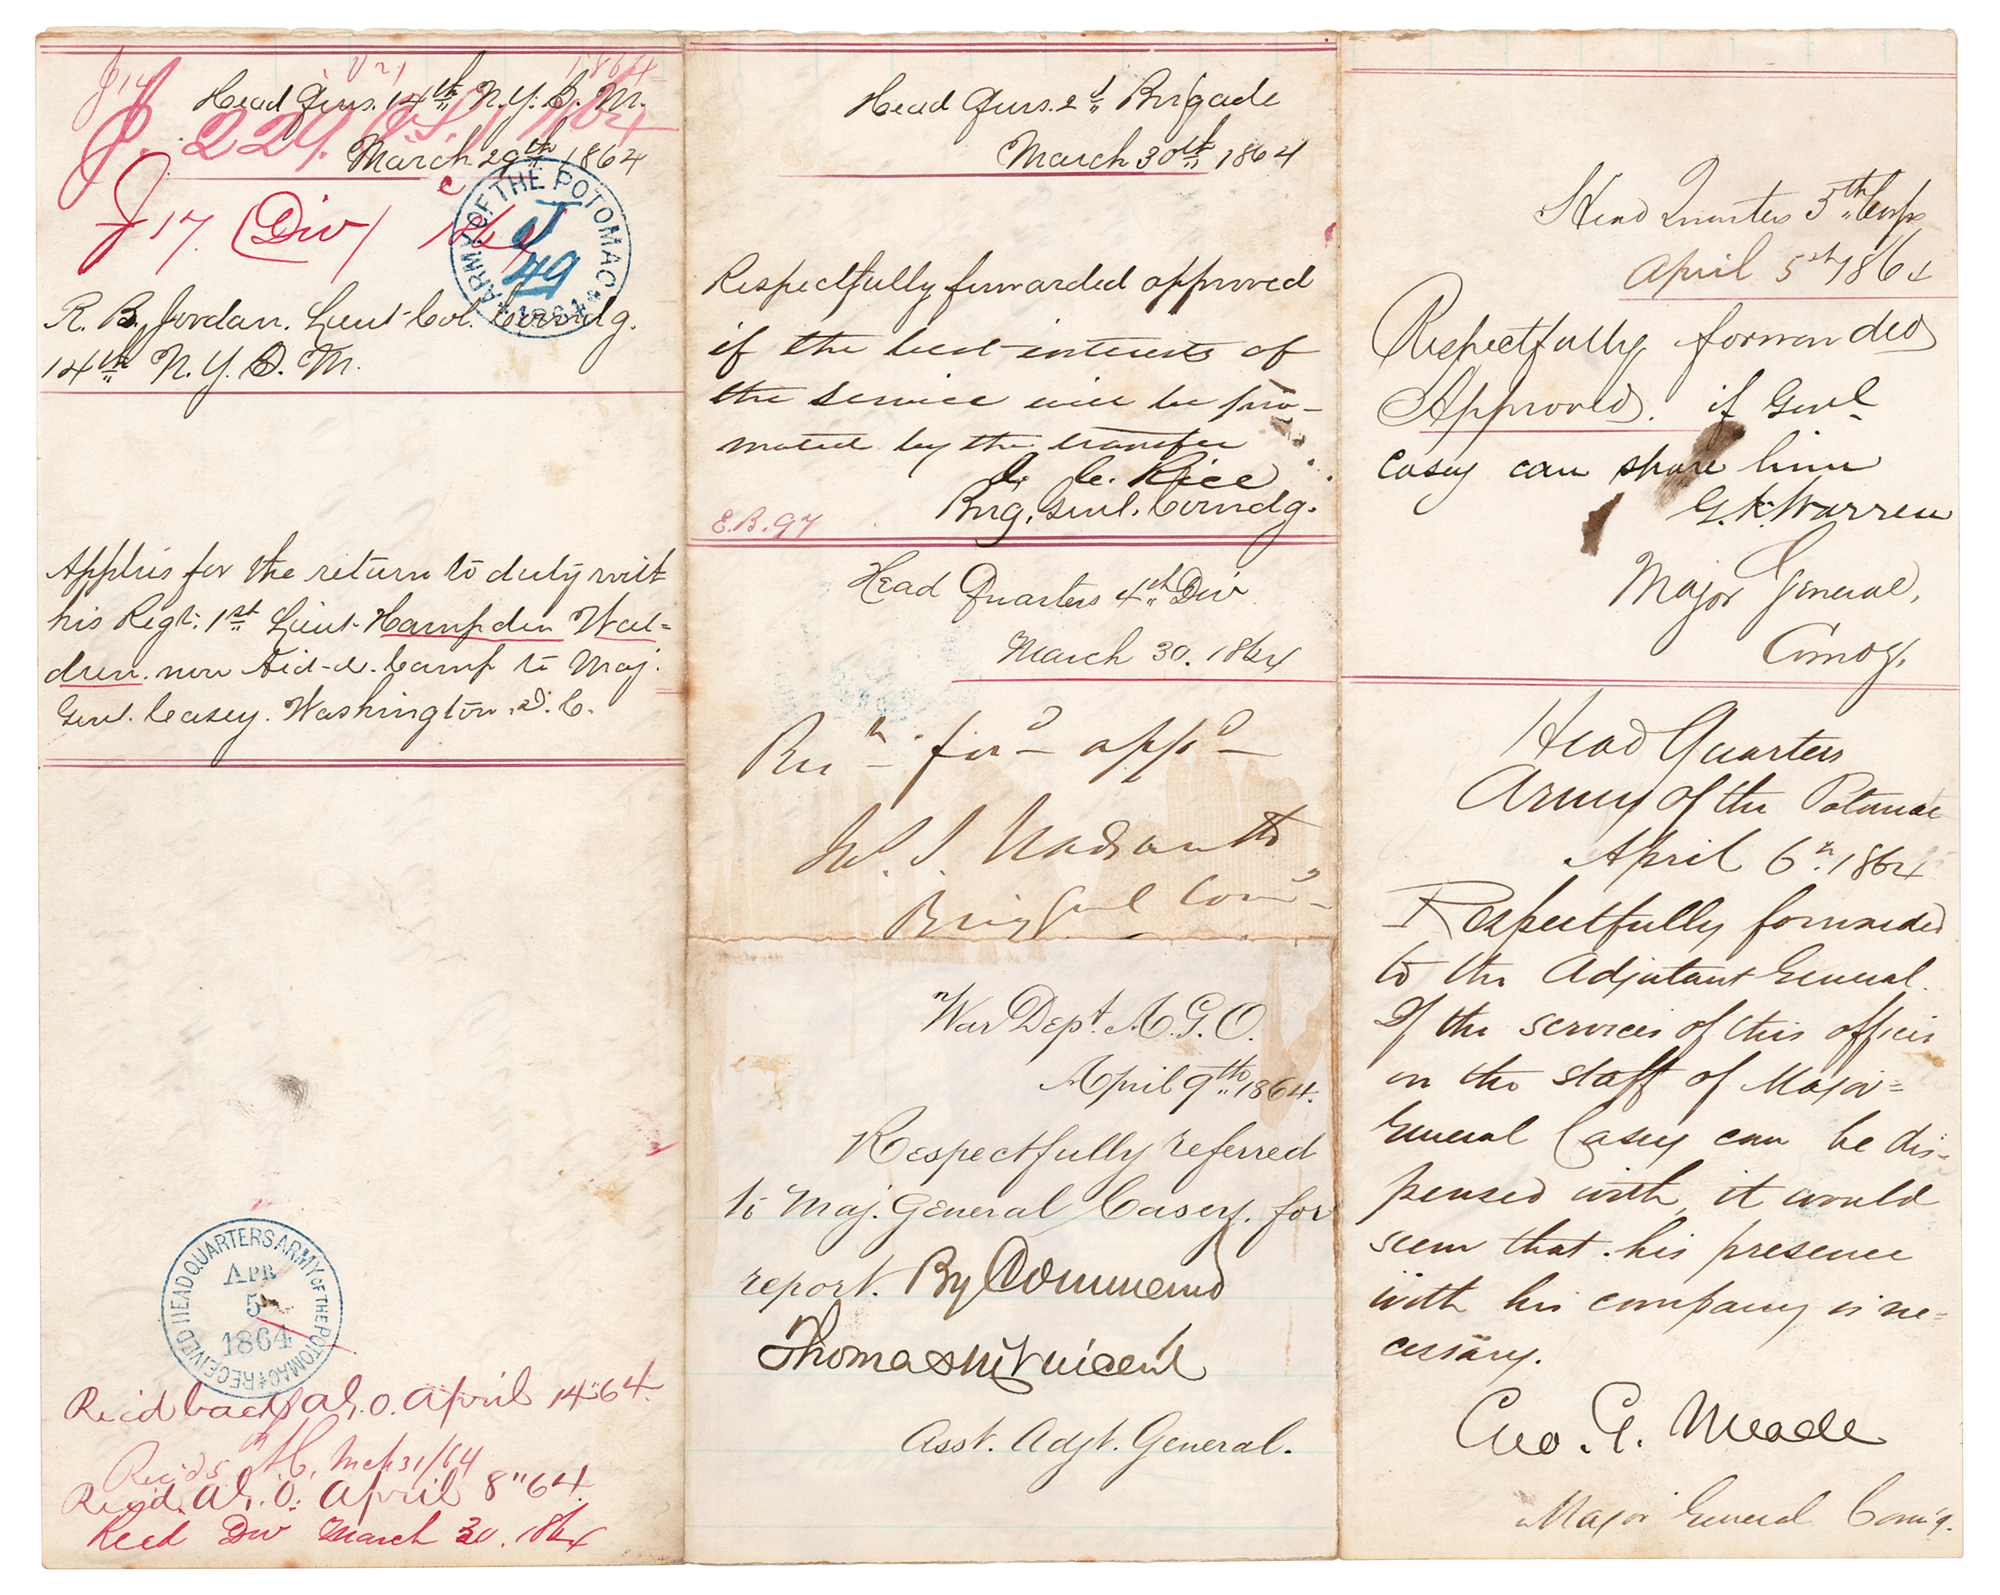 J 17
V 21
1864
Head Qurs. 14th N.Y.S.M.
J. 229. 1864
March 29th 1864
J 17. (Div) 1864
ARMY OF THE POTOMAC
J
49
1864
R. B. Jordan. Lieut-Col. Comdg.
14th N.Y.S.M.
Applies for the return to duty with
his Regt: 1st Lieut. Hampden Wal=
dren. now Aid-de-Camp to Maj.
Genl. Casey. Washington. D.C.
RECEIVED HEADQUARTERS ARMY OF THE POTOMAC
APR
5
1864
Recd back A.G.O. April 14" 64.
Recd 5 A.C. Mch 31/64
Recd. A.G.O. April 8" 64.
Recd Div March 30. 1864
Head Qurs. 2d Brigade
March 30th 1864
Respectfully forwarded approved
if the best interests of
the service will be pro-
moted by the transfer
J. C. Rice
Brig. Genl. Comdg.
E.B. 97
Head Quarters 4th Div
March 30. 1864
for'd appd
Jas. S. Wadsworth
Brig Genl Comd
War Dept. A.G.O.
April 9th 1864.
Respectfully referred
to Maj. General Casey. for
report. By Command
Thomas M Vincent
Asst. Adjt. General.
Head Quarters 5th Corps
April 5th 1864
Respectfully forwarded
Approved. if Genl
Casey can spare him
G. K. Warren
Major General,
Comdg.
Head Quarters
Army of the Potomac
April 6th 1864
Respectfully forwarded
to the Adjutant General.
If the services of this officer
on the staff of Major=
General Casey can be dis-
pensed with, it would
seem that his presence
with his company is ne=
cessary.
Geo. G. Meade
Major General Comd'g.